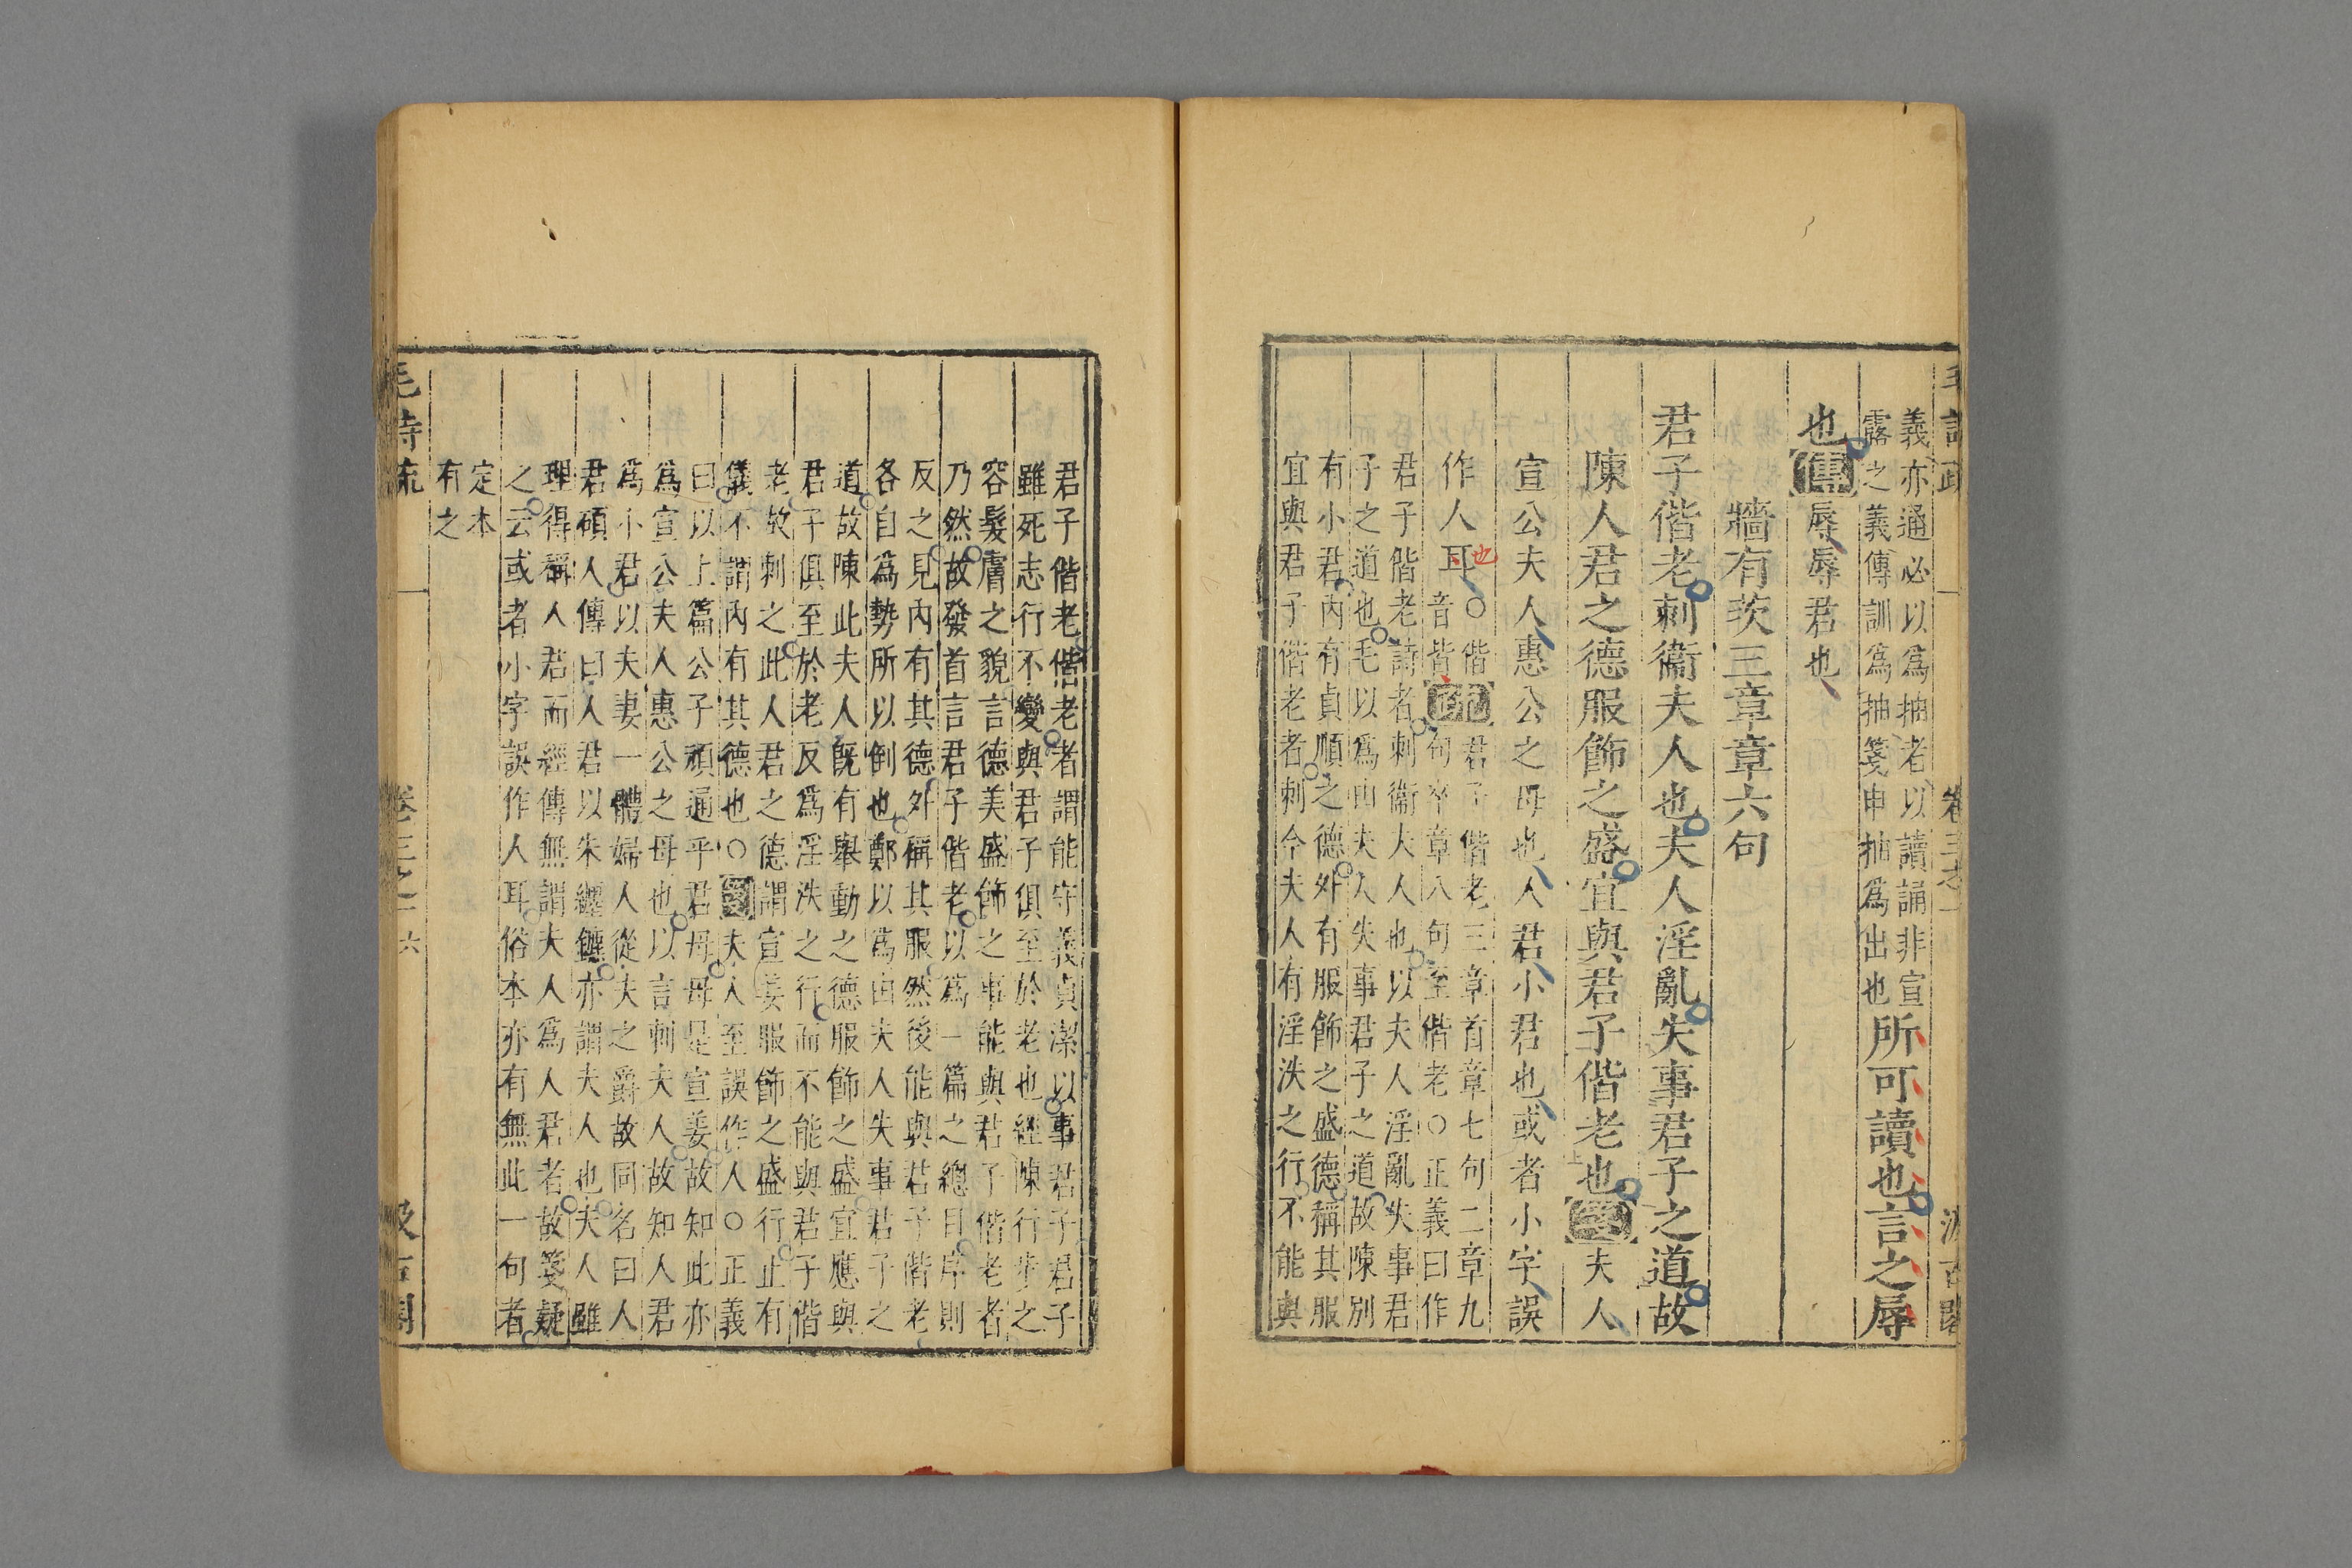 義亦通必以爲抽者以讀誦非宣
露之義傳訓爲抽箋申抽爲出也所可讀也言之辱
也傳辱辱君也
牆有茨三章章六句
君子偕老刺衞夫人也夫人淫亂失事君子之道故
陳人君之德服飾之盛宜與君子偕老也箋夫人
宣公夫人惠公之母也人君小君也或者小字誤
作人耳也○偕
音皆疏君子偕老三章首章七句二章九
句卒章八句至偕老○正義曰作
君子偕老詩者刺衞夫人也以夫人淫亂失事君
子之道也毛以爲由夫人失事君子之道故陳別
有小君內有貞順之德外有服飾之盛德稱其服
宜與君子偕老者刺今夫人有淫泆之行不能與
君子偕老偕老者謂能守義貞潔以事君子君子
雖死志行不變與君子俱至於老也經陳行步之
容髮膚之貌言德美盛飾之事能與君子偕老者
乃然故發首言君子偕老以爲一篇之總目序則
反之見內有其德外稱其服然後能與君子偕老
各自爲勢所以倒也鄭以爲由夫人失事君子之
道故陳此夫人旣有舉動之德服飾之盛宜應與
君子俱至於老反爲淫泆之行而不能與君子偕
老故刺之此人君之德謂宣姜服飾之盛行止有
儀不謂內有其德也○箋夫人至誤作人○正義
曰以上篇公子頑通乎君母母是宣姜故知此亦
爲宣公夫人惠公之母也以言刺夫人故知人君
爲小君以夫妻一體婦人從夫之爵故同名曰人
君碩人傳曰人君以朱纏鑣亦謂夫人也夫人雖
理得稱人君而經傳無謂夫人爲人君者故箋疑
之云或者小字誤作人耳俗本亦有無此一句者
定本
有之
毛詩疏 卷三之一 六 汲古閣